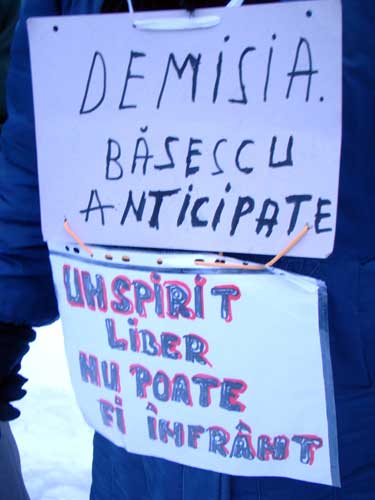 DEMISIA.
BĂSESCU
ANTICIPATE
UN SPIRIT
LIBER
NU POATE
FI ÎNFRÂNT